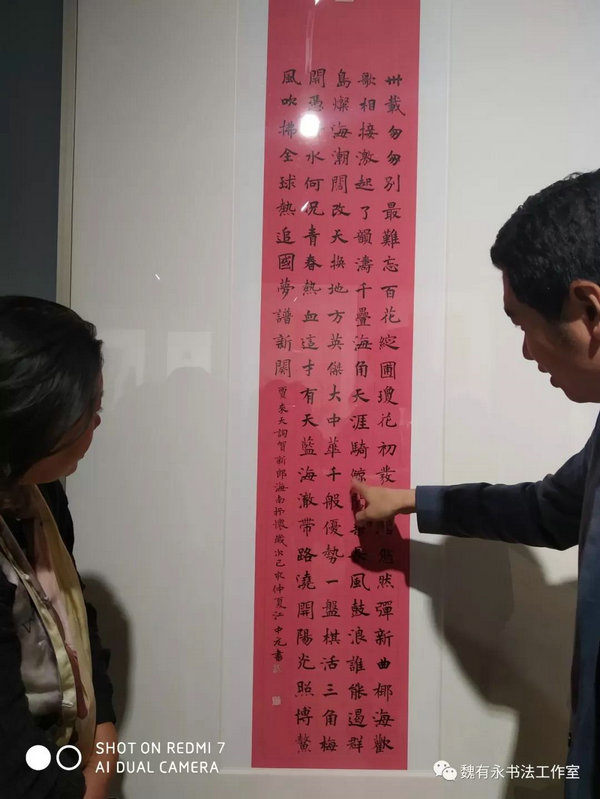 卅載匆匆別最難忘百花綻圃瓊花初發悠然彈新曲椰海歡
歌相接激起了韻濤千疊海角天涯騎鯨風鼓浪誰能群
島燦海潮闊改天換地方英傑大中華千般優勢一盤棋活三角梅
開憑水何況青春熱血這才有天藍海澈帶路澆開陽光照博鰲
風吹拂全球熱追國夢譜新闋
賈來天詞賀新郎海南抒懷歲次己亥仲夏江中元書
SHOT ON REDMI 7
AI DUAL CAMERA
魏有永书法工作室